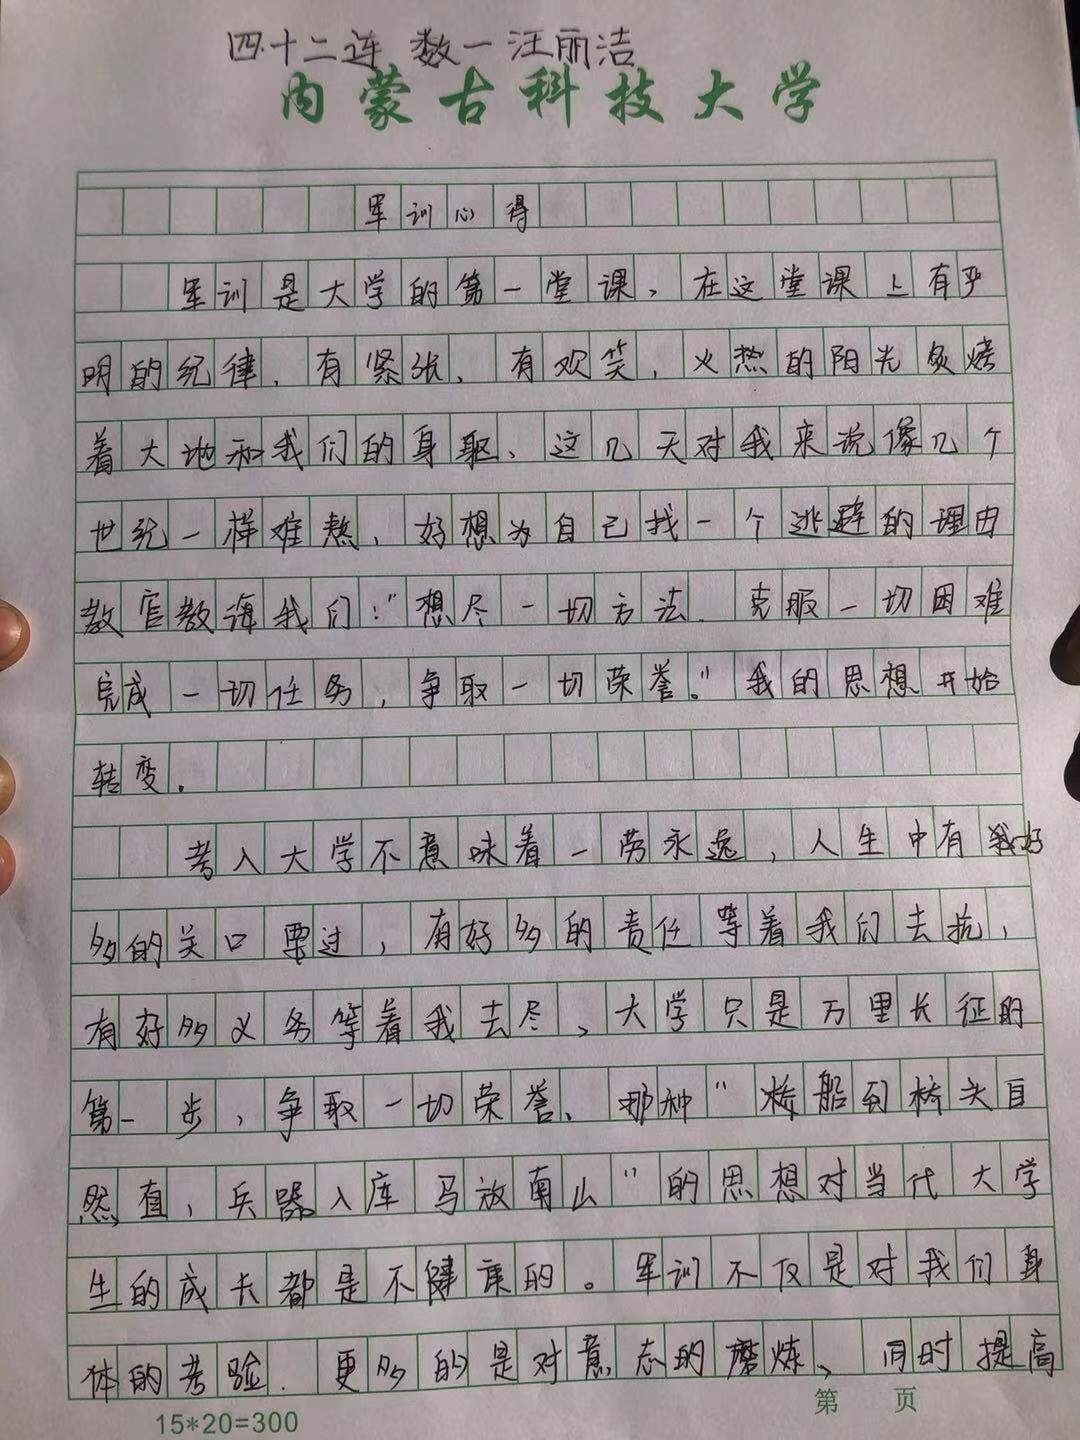 四十二连 数一 汪丽洁
内蒙古科技大学
军训心得
军训是大学的第一堂课、在这堂课上有严
明的纪律、有紧张、有欢笑，火热的阳光炙烤
着大地和我们的身躯、这几天对我来说像几个
世纪一样难熬，好想为自己找一个逃避的理由
教官教诲我们："想尽一切方法、克服一切困难
完成一切任务，争取一切荣誉。"我的思想开始
转变.
考入大学不意味着一劳永逸，人生中有好
多的关口要过，有好多的责任等着我们去抗，
有好多义务等着我去尽、大学只是万里长征的
第一步，争取一切荣誉、那种"桥船到桥头自
然直，兵器入库 马放南山"的思想对当代大学
生的成长都是不健康的。军训不仅是对我们身
体的考验.更多的是对意志的磨炼、同时提高
15*20=300
第 页